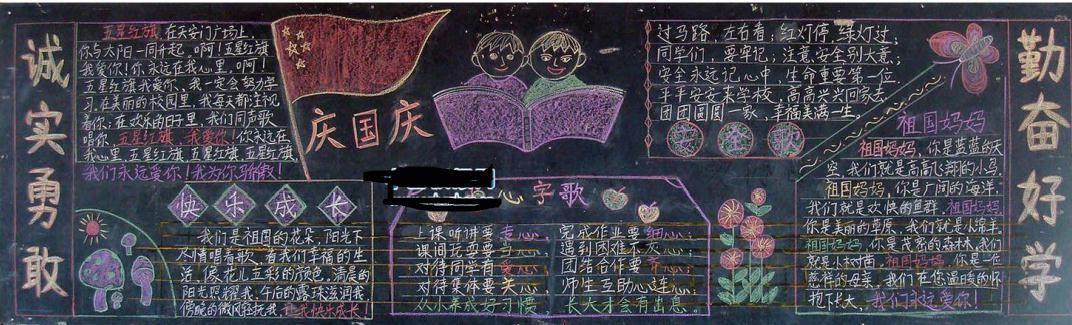 诚实勇敢
五星红旗,在天安门广场上,
你与太阳一同升起,啊!五星红旗
我爱你!你永远在我心里,啊!
五星红旗我爱你,我一定会努力学
习,在美丽的校园里,我每天都注视
着你,在欢乐的日子里,我们同声歌
唱你,五星红旗,我爱你!你永远在
我心里,五星红旗,五星红旗,五星红旗,
我们永远爱你!我为你骄傲!
庆国庆
快乐成长
我们是祖国的花朵,阳光下
尽情唱着歌,看我们幸福的生
活,像花儿五彩的颜色,清晨的
阳光照耀我,午后的露珠滋润我
傍晚的微风轻抚我,让我快乐成长!
心字歌
上课听讲要专心,
课间玩耍要
对待同学有
对待集体要关心,
从小养成好习惯,
完成作业要细心;
遇到困难不灰心;
团结合作要齐心;
师生互助心连心;
长大才会有出息.
过马路,左右看;红灯停,绿灯过;
同学们,要牢记;注意安全别大意;
安全永远记心中,生命重要第一位,
平平安安来学校,高高兴兴回家去
团团圆圆一家,幸福美满一生。
安全歌
祖国妈妈
祖国妈妈,你是蓝蓝的天
空,我们就是高高飞翔的小鸟,
祖国妈妈,你是广阔的海洋,
我们就是欢快的鱼群,祖国妈妈,
你是美丽的草原,我们就是小绵羊,
祖国妈妈,你是茂密的森林,我们
就是小树苗,祖国妈妈,你是一位
慈祥的母亲,我们在您温暖的怀
抱下长大,我们永远爱你!
勤奋好学